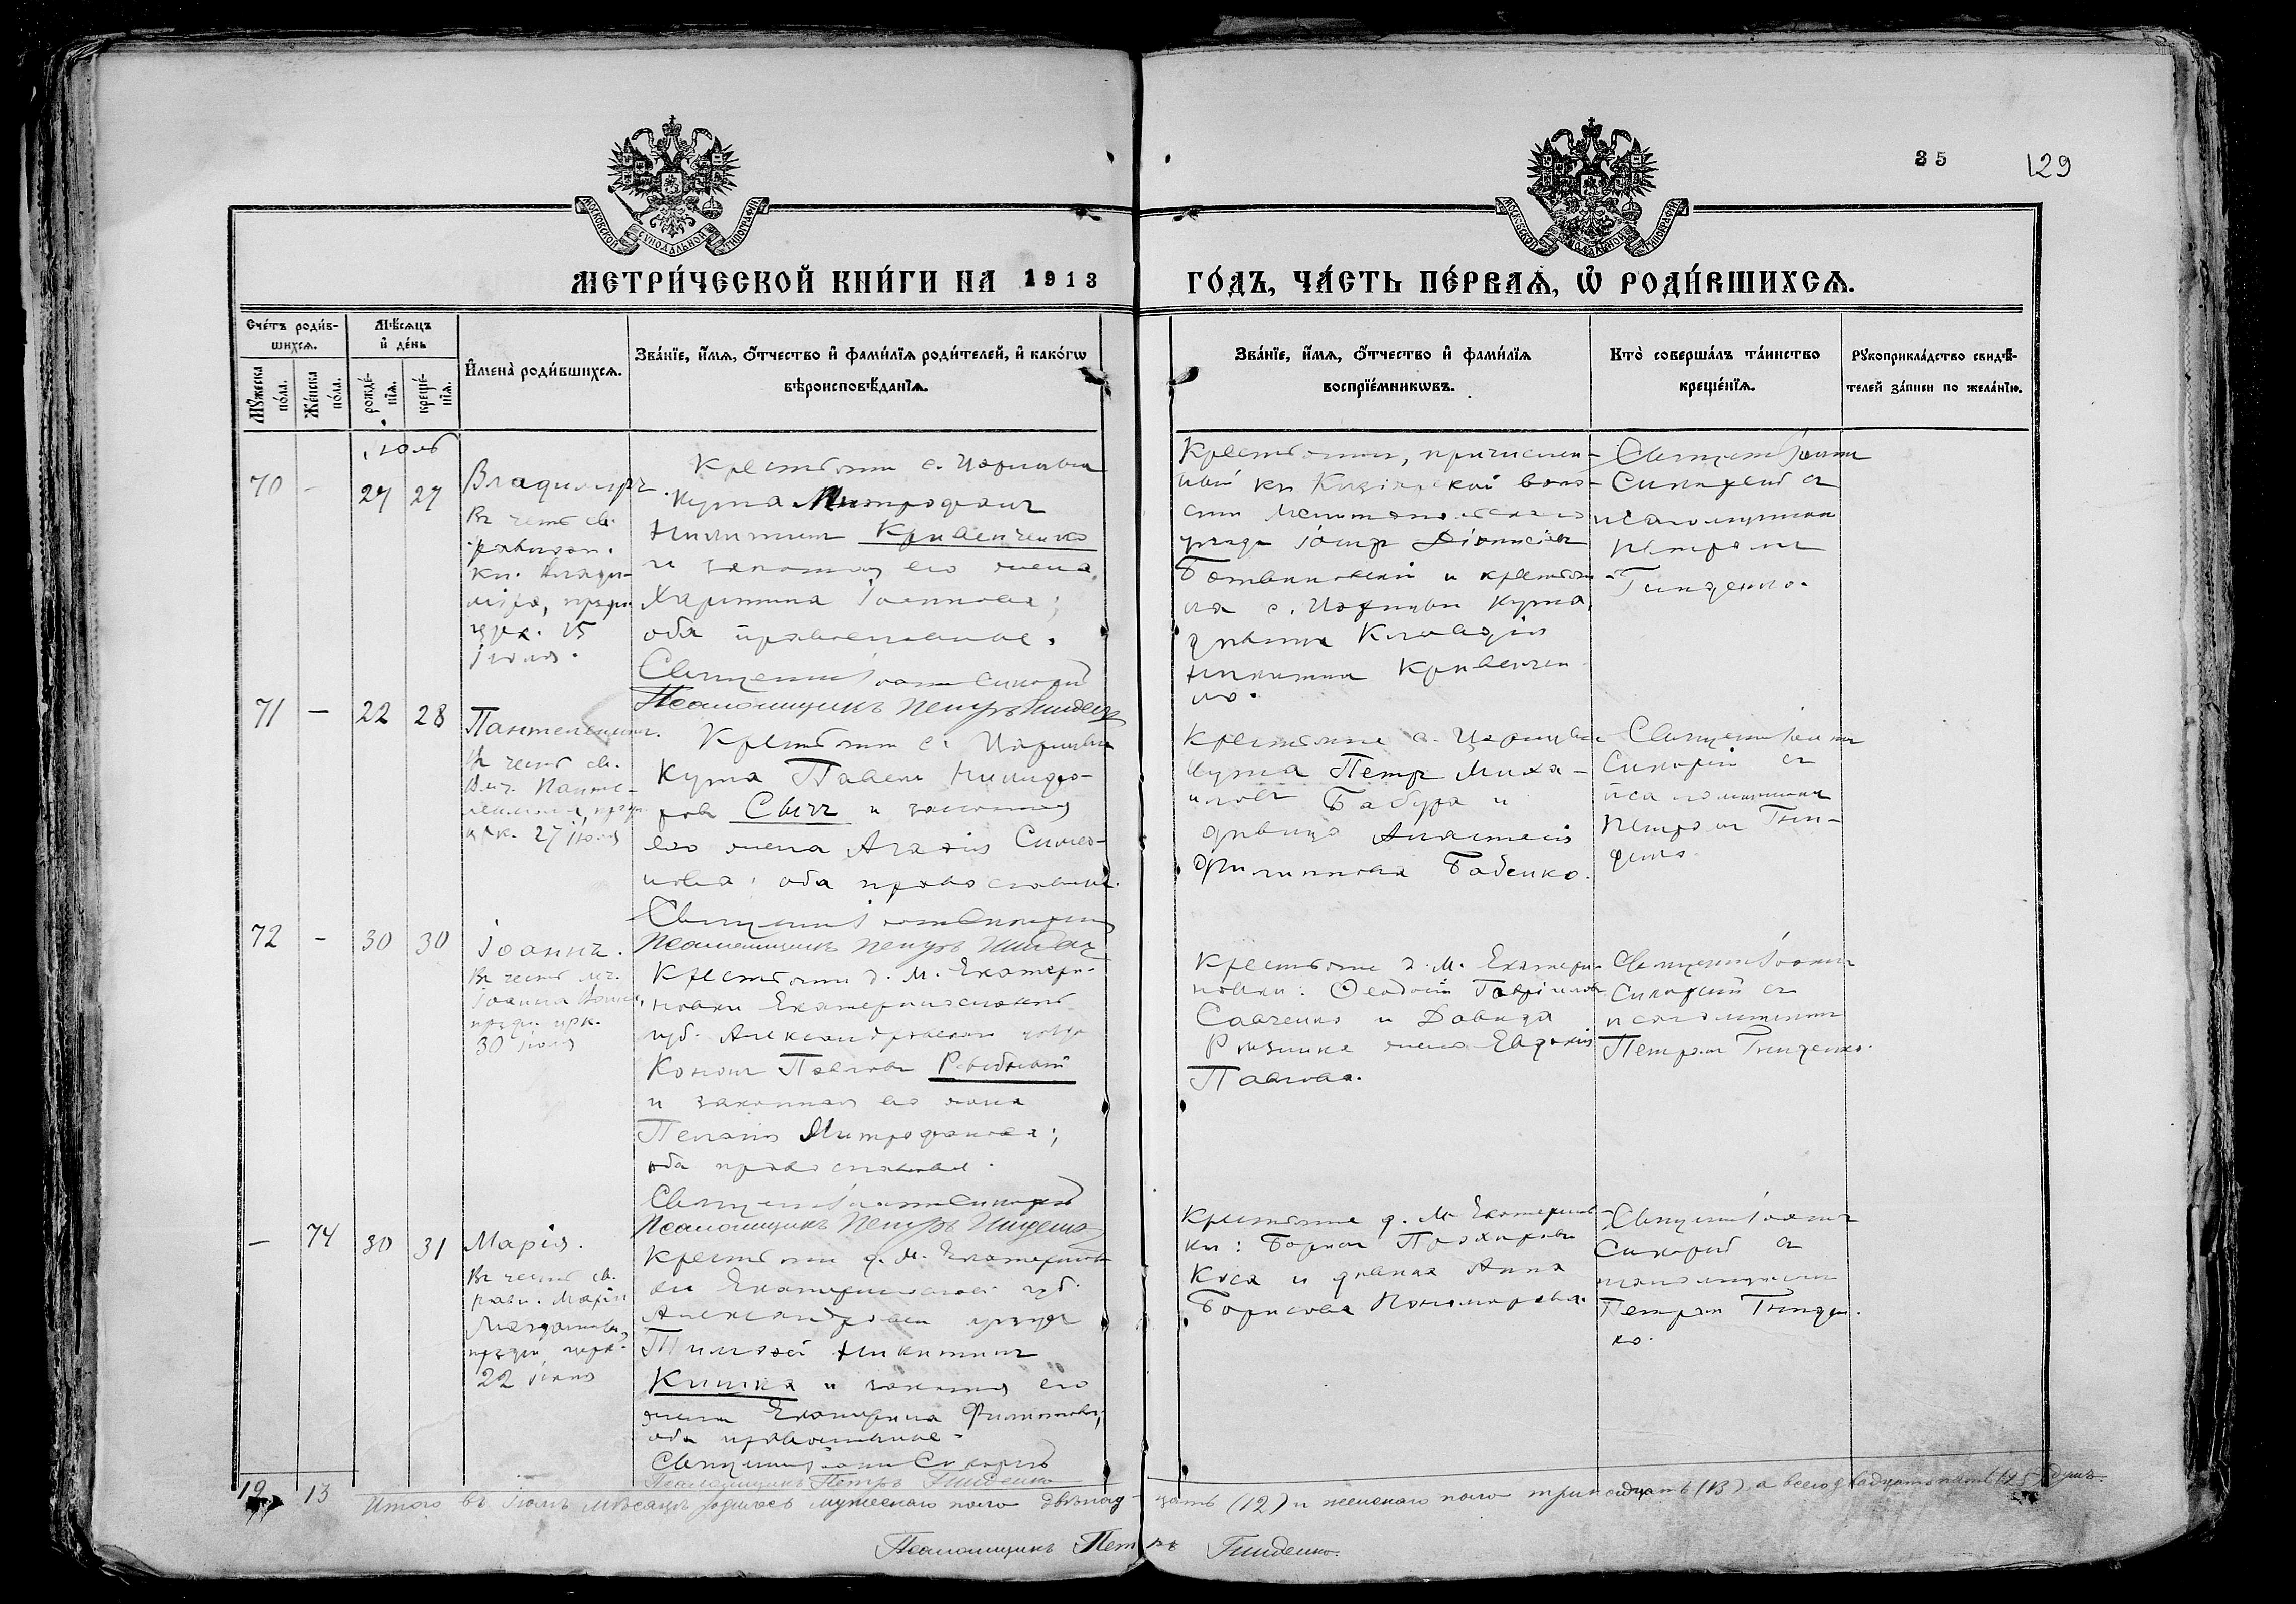 35 129
МОСКОВСКОЙ СѴНОДАЛЬНОЙ ТИПОГРАФІИ
МОСКОВСКОЙ СѴНОДАЛЬНОЙ ТИПОГРАФІИ
МЕТРИ́ЧЕСКОЙ КНИ́ГИ НА 1913 ГО́ДЪ, ЧА́СТЬ ПЕ́РВАѦ, Ѽ РОДИ́ВШИХСѦ.
Сче́тъ роди́в-
шихсѧ.
Мꙋ́жеска по́ла.
Же́нска по́ла.
Мѣ́сѧцъ
и҆ де́нь
рожде́-
нїѧ.
креще́-
нїѧ.
И҆мена̀ роди́вшихсѧ.
Зва́нїе, и҆́мѧ, ѻ҆́тчество и҆ фами́лїѧ роди́телей, и҆ како́гѡ
вѣроисповѣ́данїѧ.
Зва́нїе, и҆́мѧ, ѻ҆́тчество и҆ фами́лїѧ
воспрїе́мникѡвъ.
Кто̀ соверша́лъ та́инство
креще́нїѧ.
Рꙋкоприкла́дство свидѣ́-
телей за́писи по жела́нїю.
Іюль
70 - 27 27
Владиміръ.
Въ честь св.
равноап.
кн. Влади-
міра, празд.
церк. 15
Іюля.
Крестьянин с. Царицына
Кута Митрофанъ
Никитинъ Кривенченко
и законная его жена
Харитина Іоаннова;
оба православные.
Священникъ Іоаннъ Сикорскій
Псаломщикъ Петръ Гниденко
Крестьянин, причислен-
ный къ воло-
сти Мелитопольскаго
уѣзда Іосифъ
и крестьян-
ка с. Царицына Кута,
дѣвица Клавдія
Никитина Кривенчен-
ко.
Священ. Іоаннъ
Сикорскій съ
псаломщикомъ
Петромъ
Гниденко.
71 — 22 28
Пантелеимонъ.
Въ честь св.
Вмч. Панте-
леимона, празд.
црк. 27 Іюля
Крестьянин с. Царицына
Кута Павелъ Никифо-
ровъ Сычъ и законная
его жена Агафія Симео-
нова; оба православные.
Священникъ Іоаннъ Сикорскій
Псаломщикъ Петръ Гниденко
Крестьяне с. Царицына
Кута Петръ Миха-
иловъ Бабура и
дѣвица Анастасія
Филиппова Бабенко.
Священ. Іоаннъ
Сикорскій съ
псаломщикомъ
Петромъ Гни-
денко
72 - 30 30
Іоаннъ.
Въ честь мч.
Іоанна Воина,
празд. црк.
30 Іюля
Крестьянин д. М. Екатери-
новки Екатеринославской
губ. Александровскаго уѣзда
Кононъ Павловъ
и законная его жена
Пелагія Митрофанова;
оба православные.
Священникъ Іоаннъ Сикорскій
Псаломщикъ Петръ Гниденко
Крестьяне д. М. Екатери-
новки: Ѳеодосій Гавріиловъ
Савченко и Давида
жена Евдокія
Павлова.
Священникъ Іоаннъ
Сикорскій съ
псаломщикомъ
Петромъ Гниденко.
— 74 30 31
Марія.
Въ честь св.
равн. Маріи
Магдалины,
празд. церк.
22 Іюля
Крестьянин д. М. Екатеринов-
ки Екатеринослав. губ.
Александровск. уѣзда
Тимоѳей Никитинъ
Кишка и законная его
жена Екатерина Филиппова;
оба православные.
Священникъ Іоаннъ Сикорскій
Псаломщикъ Петръ Гниденко
Крестьяне д. М. Екатеринов-
ки: Борисъ Прохоровъ
Коса и дѣвица Анна
Борисова Пономарева.
Священ. Іоаннъ
Сикорскій съ
псаломщикомъ
Петромъ Гниден-
ко.
12 13 Итого въ Іюлѣ мѣсяцѣ родилось мужескаго пола двѣнад-цать (12) и женскаго пола тринадцать (13) а всего двадцать пять (25) душъ.
Псаломщикъ Петръ Гниденко.